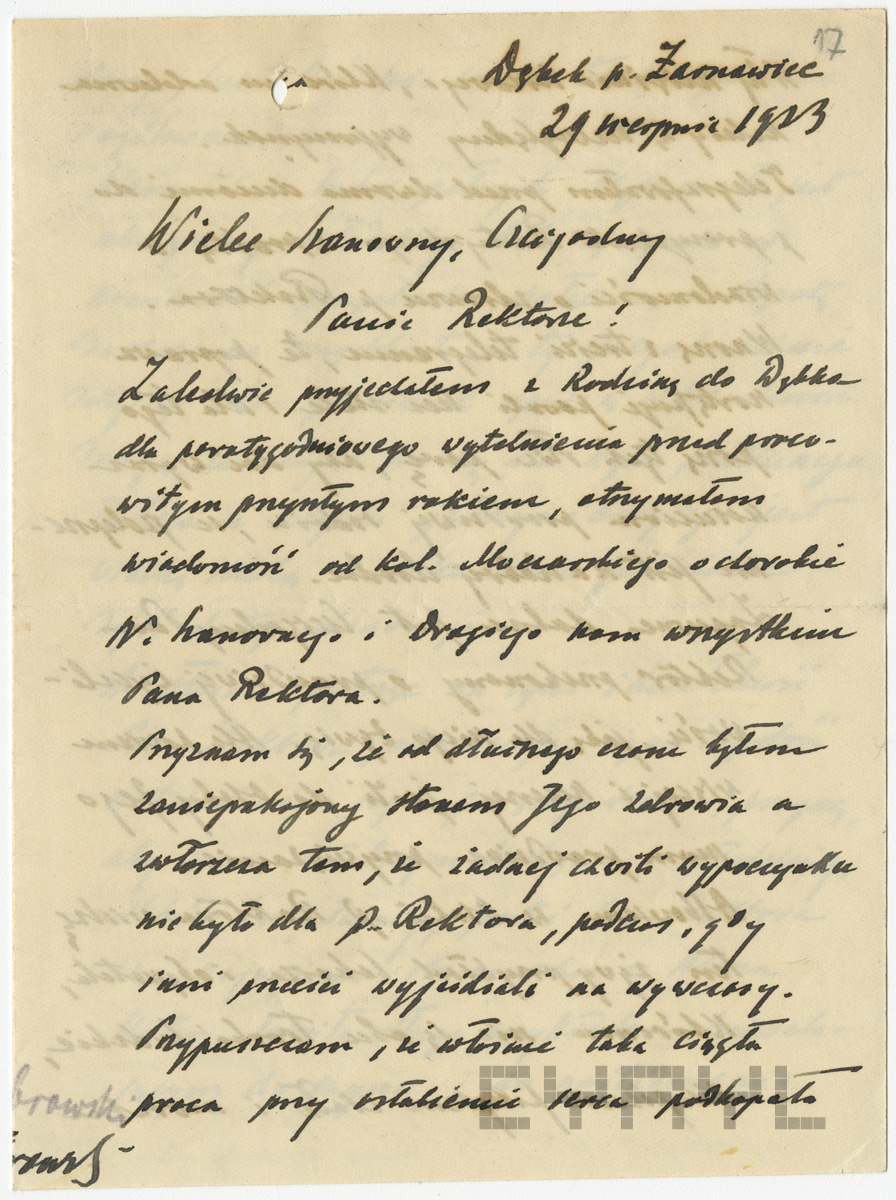 17
Dębek p. Żarnowiec
29 sierpnia 1933
Wielce Szanowny, Czcigodny
Panie Rektorze!
Zaledwie przyjechałem z Rodziną do Dębka
dla paratygodniowego wytchnienia przed praco-
witym przyszłym rokiem, otrzymałem
wiadomość od kol. Moczarskiego o chorobie
W. Szanownego i Drogiego nam wszystkim
Pana Rektora.
Przyznam się, że od dłuższego czasu byłem
zaniepokojony stanem Jego zdrowia a
zwłaszcza tem, że żadnej chwili wypoczynku
nie było dla p. Rektora, podczas, gdy
inni przecież wyjeżdżali na wywczasy.
Przypuszczam, że właśnie taka ciągła
praca przy osłabieniu serca podkopała
browski
EHAHL